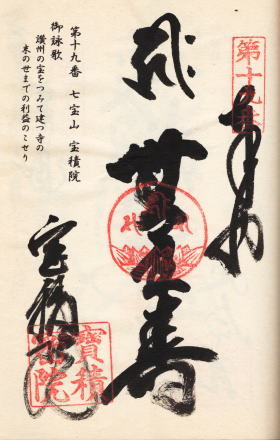 第十九番
奉納
無量寿
宝積院
寶積院
第十九番 七宝山 宝積院
御詠歌
讃州の宝をつみて建つ寺の
末の世までの利益のこせり